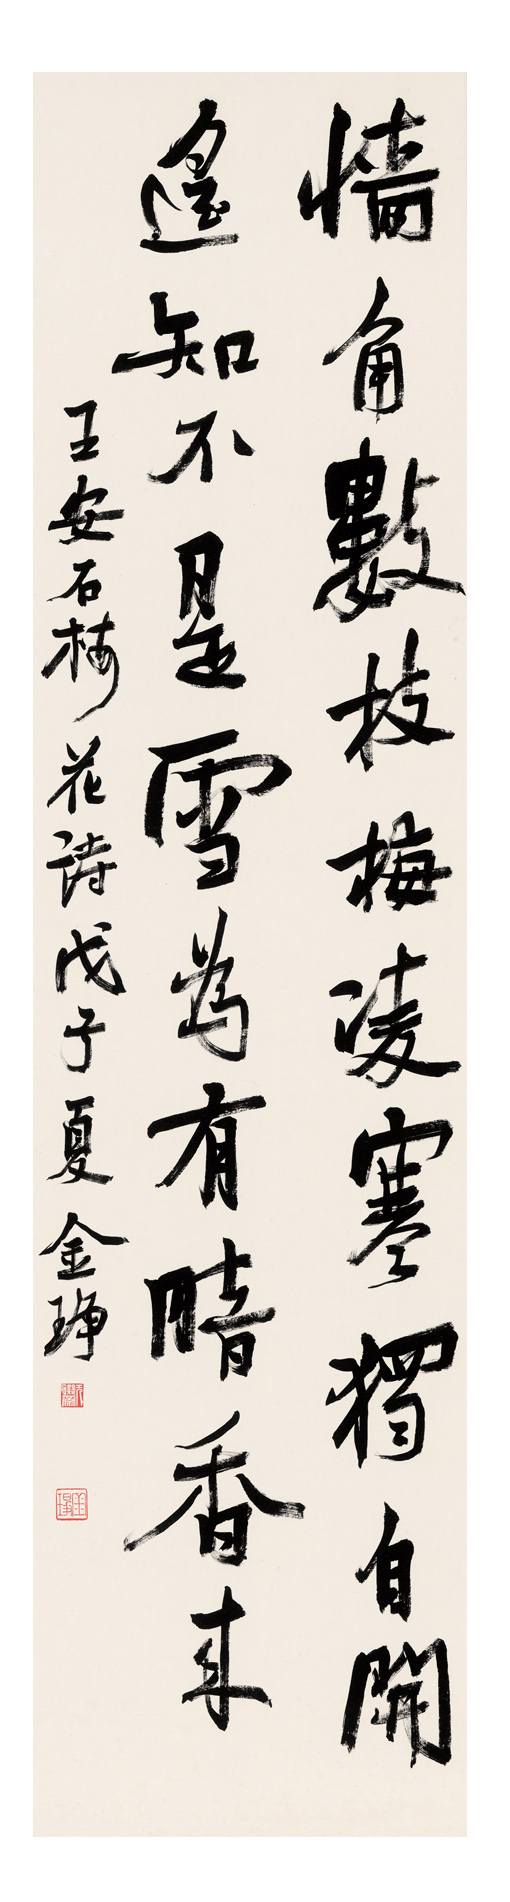 墻角數枝梅凌寒獨自開
遙知不是雪為有暗香來
王安石梅花詩戊子夏金琤